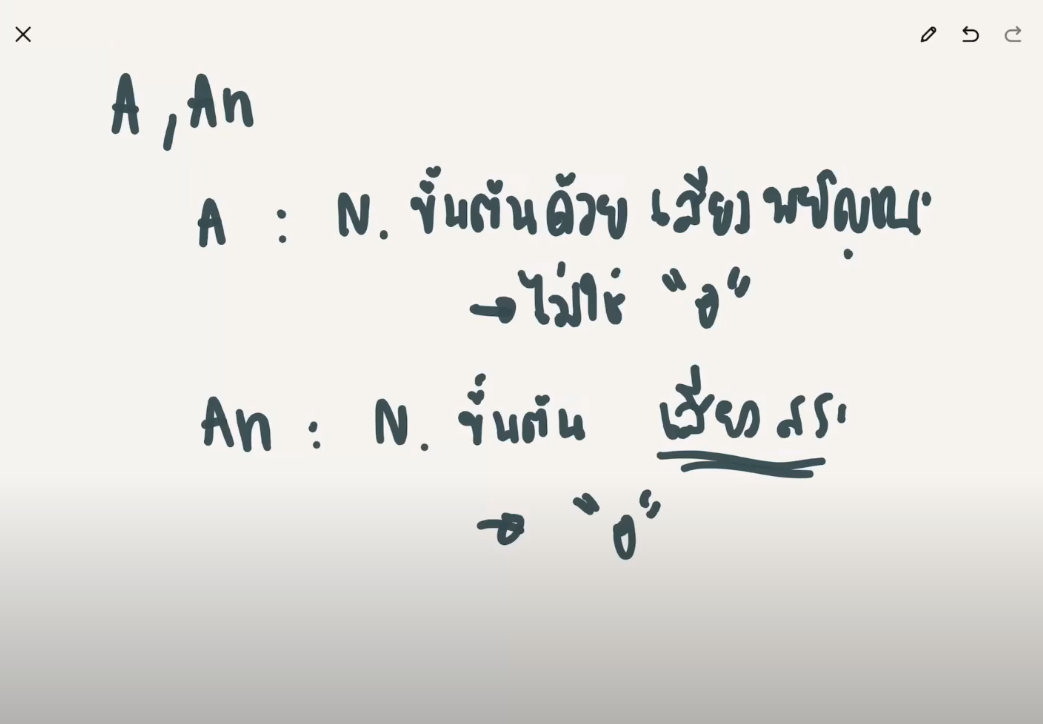 A , An
A : N. ขึ้นต้นด้วย เสียง พยัญชนะ
→ ไม่ใช่ "อ"
An : N. ขึ้นต้น เสียง สระ
→ "อ"